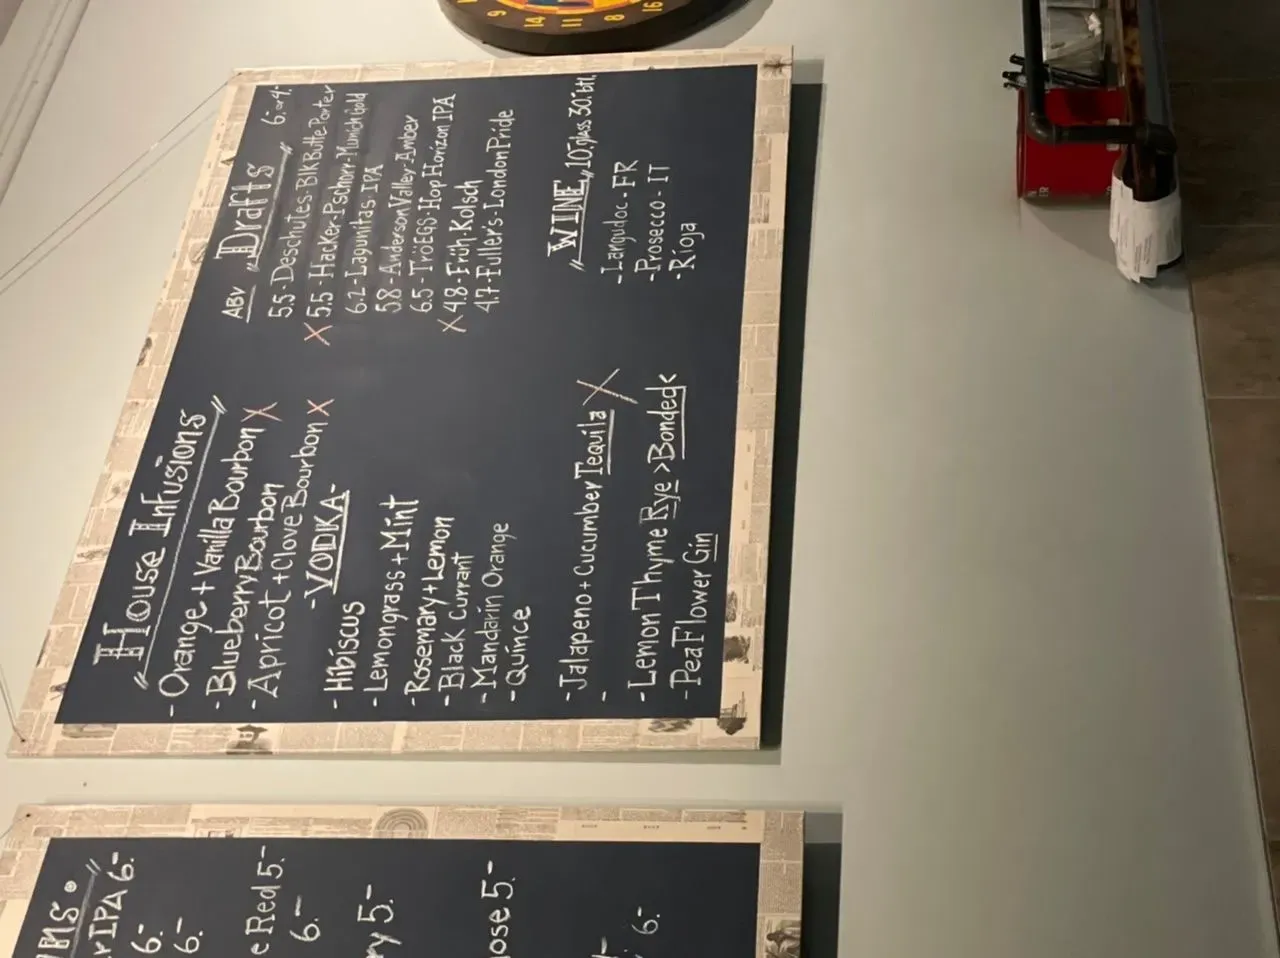 "House Infusions"
- Orange + Vanilla Bourbon X
- Blueberry Bourbon
- Apricot + Clove Bourbon X
- VODKA -
- Hibiscus
- Lemongrass + Mint
- Rosemary + Lemon
- Black Currant
- Mandarin Orange
- Quince
- Jalapeno + Cucumber Tequila X
-
- Lemon Thyme Rye >Bonded<
- Pea Flower Gin
ABV "Drafts" 6. or 4.-
5.5 - Deschutes - Blk Butte Porter
X 5.5 - Hacker-Pschorr - Munich Gold
6.2 - Lagunitas - IPA
5.8 - Anderson Valley - Amber
6.5 - TröEGS - Hop Horizon IPA
X 4.8 - Früh - Kolsch
4.7 - Fuller's - London Pride
"WINE" 10.glass 30.btl.
- Langudoc - FR
- Prosecco - IT
- Rioja
IPA 6.-
6.-
6.-
Red 5.-
6.-
5.-
5.-
6.-
9 14 11 8 16